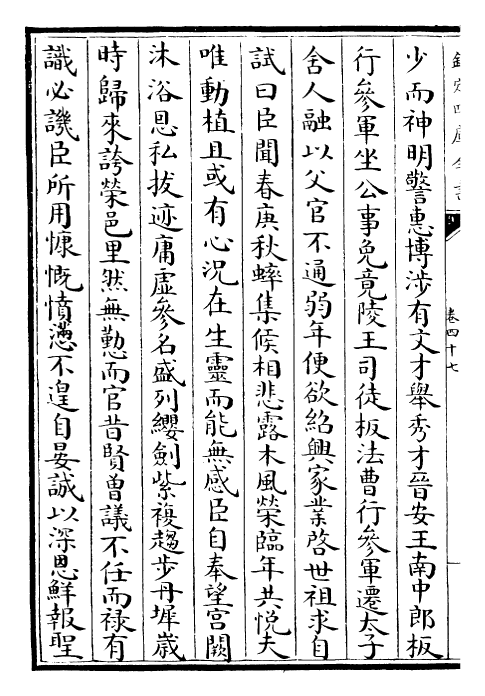 欽定四庫全書
卷四十七
少而神明警惠博涉有文才舉秀才晉安王南中郎板
行參軍坐公事免竟陵王司徒板法曹行參軍遷太子
舍人融以父官不通弱年便欲紹興家業啓世祖求自
試曰臣聞春庚秋蟀集候相悲露木風榮臨年共悅夫
唯動植且或有心況在生靈而能無感臣自奉望宮闕
沐浴恩私拔迹庸虛參名盛列纓劍紫複趨步丹墀歲
時歸來誇榮邑里然無勤而官昔賢曾議不任而祿有
識必譏臣所用慷慨憤懣不遑自晏誠以深恩鮮報聖